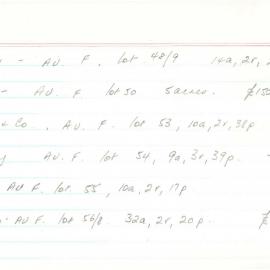 - Av. F. lot 48/9 14a, 2r,
- Av. F lot 50 5 acres. £150
& Co. Av. F. lot 53, 10a, 2r, 38p
y Av. F. lot 54, 9a, 3r, 39p. -
Av F. lot 55, 10a, 2r, 17p
- Av F. lot 56/8. 32a, 2r, 20p. £